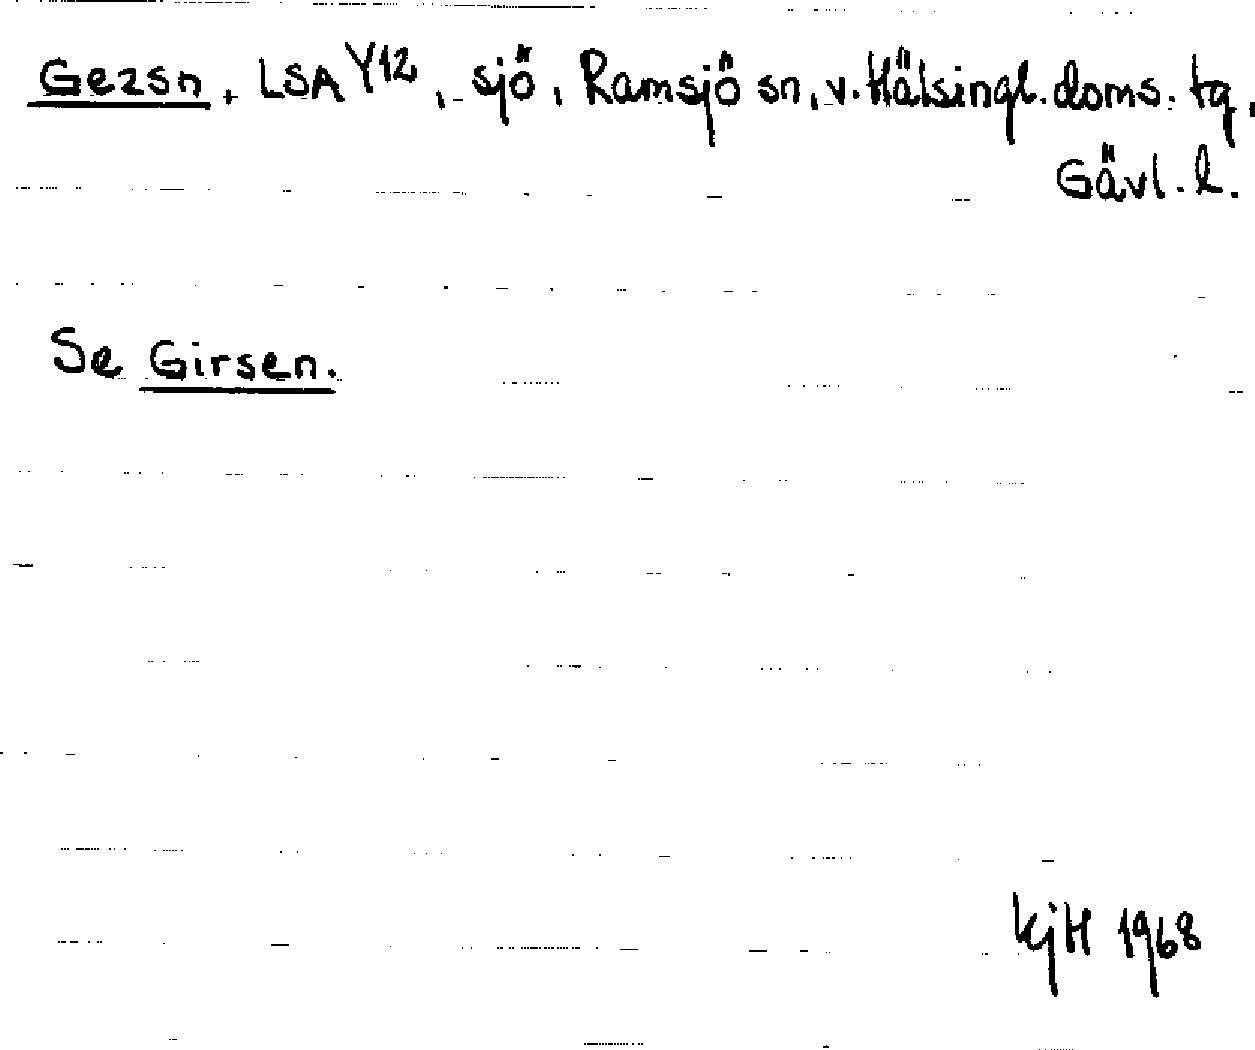 Gezsn, LSA Y12, sjö, Ramsjö sn, v. Hälsingl. doms. tg,
Gävl. l.
Se Girsen.
KjH 1968